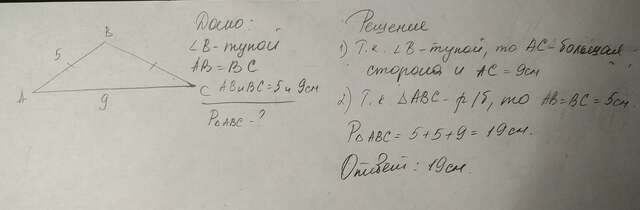 B
5
A
9
C
Дано:
∠B-тупой
AB=BC
AB и BC=5 и 9см
P△ABC-?
Решение
1) Т.к. ∠B-тупой, то AC-большая
сторона и AC=9см
2) Т.к △ABC-р/б, то AB=BC=5см
P△ABC=5+5+9=19см.
Ответ: 19см.